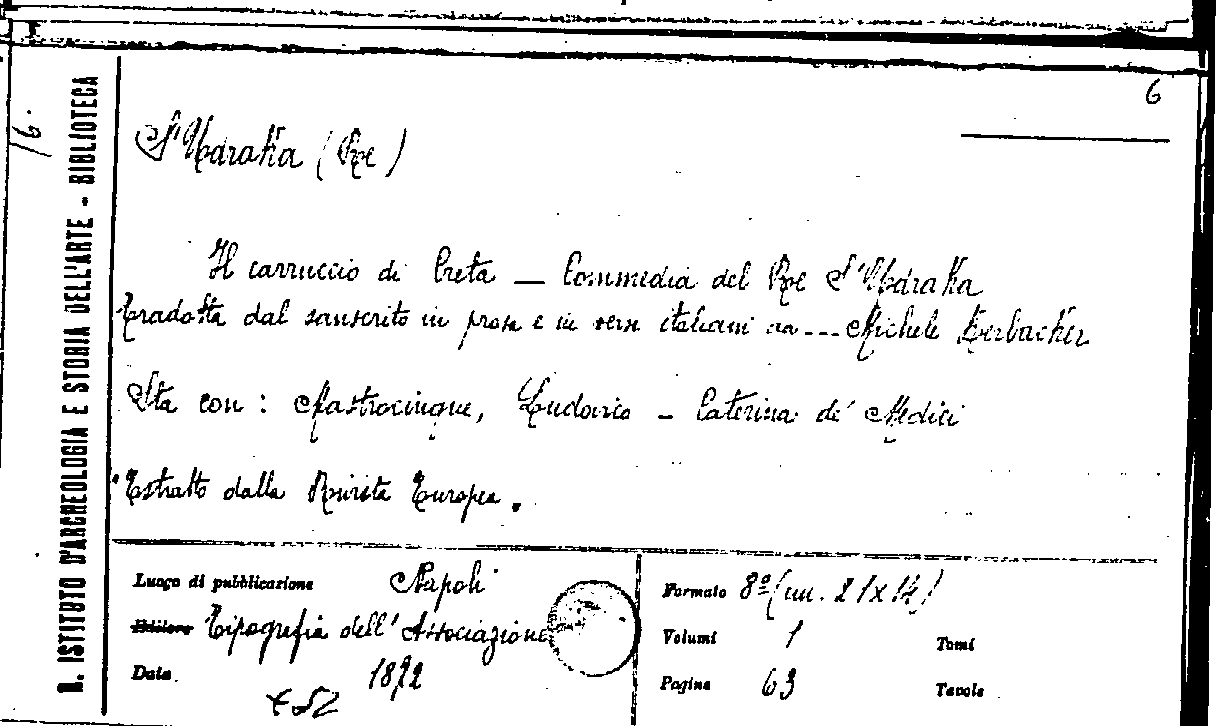 6
16.
R. ISTITUTO D'ARCHEOLOGIA E STORIA DELL'ARTE - BIBLIOTECA
S'Udraka (Re)
Il carruccio di Creta — Commedia del Re S'Udraka
Tradotta dal sanscrito in prosa e in versi italiani da --- Michele Kerbacher
Sta con : Mastrocinque, Ludovico - Caterina de' Medici
Estratto dalla Rivista Europea.
Luogo di pubblicazione Napoli
Editore Tipografia dell'Associazione
Data 1872
Formato 8º (cm. 21x14)
Volumi 1 Tomi
Pagine 63 Tavole